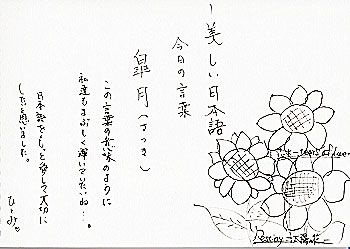 ～美しい日本語
今日の言葉
皐月（さつき）
この言葉の意味のように
私達もまぶしく輝いていたいね…。
日本語をもっと愛して大切に
したいと思いました。
ひとみ。